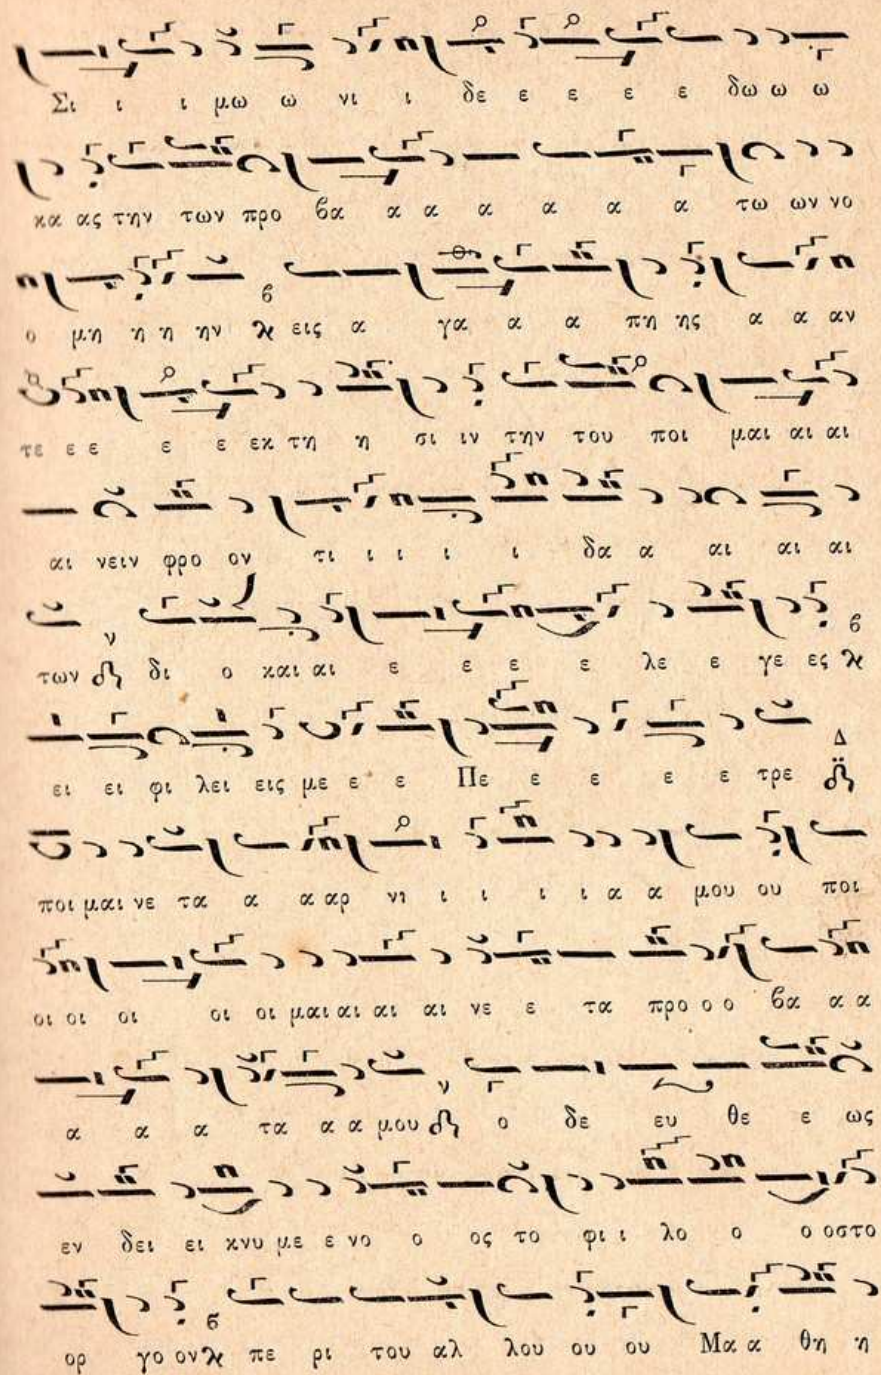 Σι ι ι μω ω νι ι δε ε ε ε ε δω ω ω
κα ας την των προ βα α α α α α α τω ων νο
ο μη η η ην εις α γα α α πη ης α α αν
τε ε ε ε ε εκ τη η σι ιν την του ποι μαι αι αι
αι νειν φρο ον τι ι ι ι ι δα α αι αι αι
των δι ο και αι ε ε ε ε λε ε γε ες
ει ει φι λει εις με ε ε Πε ε ε ε ε τρε
ποι μαι νε τα α α αρ νι ι ι ι ι α α μου ου ποι
οι οι οι οι οι μαι αι αι αι νε ε τα προ ο ο βα α α
α α α τα α α μου ο δε ευ θε ε ως
εν δει ει κνυ με ε νο ο ος το φι ι λο ο ο οστο
ορ γο ον πε ρι του αλ λου ου ου Μα α θη η